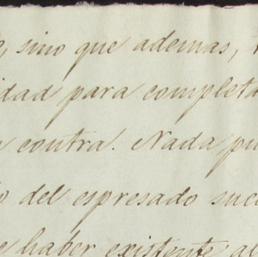 , sino que ademas,
idad para completa
contra. Nada pu
del espresado suc
haber existente al